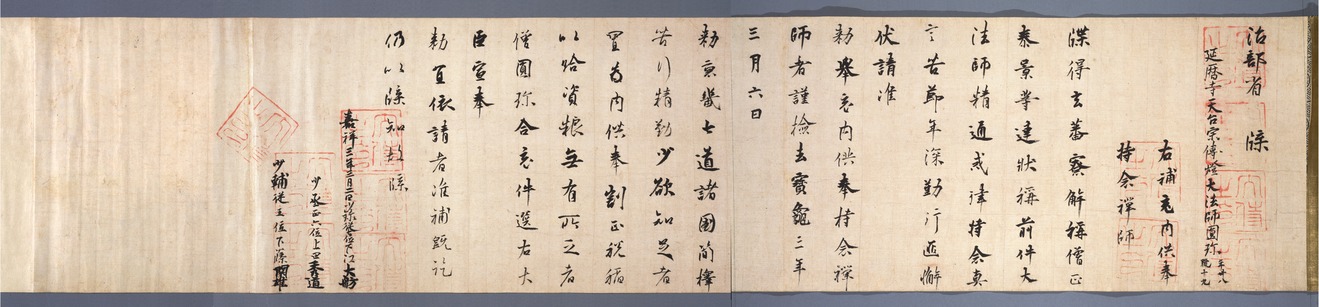 治部省 牒
延暦寺天台宗傳燈大法師圓珍 年卅八 臈十九
右補充内供奉
持念禪師
牒得玄蕃寮解稱僧正
泰景挙達状稱前件大
法師精通戒律持念真
言苦節年深勤行匪懈
伏請准
勅挙充内供奉持念禪
師者謹撿去寶龜三年
三月六日
勅京畿七道諸國簡擇
苦行精勤少欲知足者
置為内供奉割正税稲
以給資粮無有所乏者
僧圓珎合充件選右大
臣宣奉
勅宜依請者准補既訖
仍以牒知故牒
嘉祥三年三月二日少録従位下江大舫
少丞正六位上四秀道
少輔従五位下藤